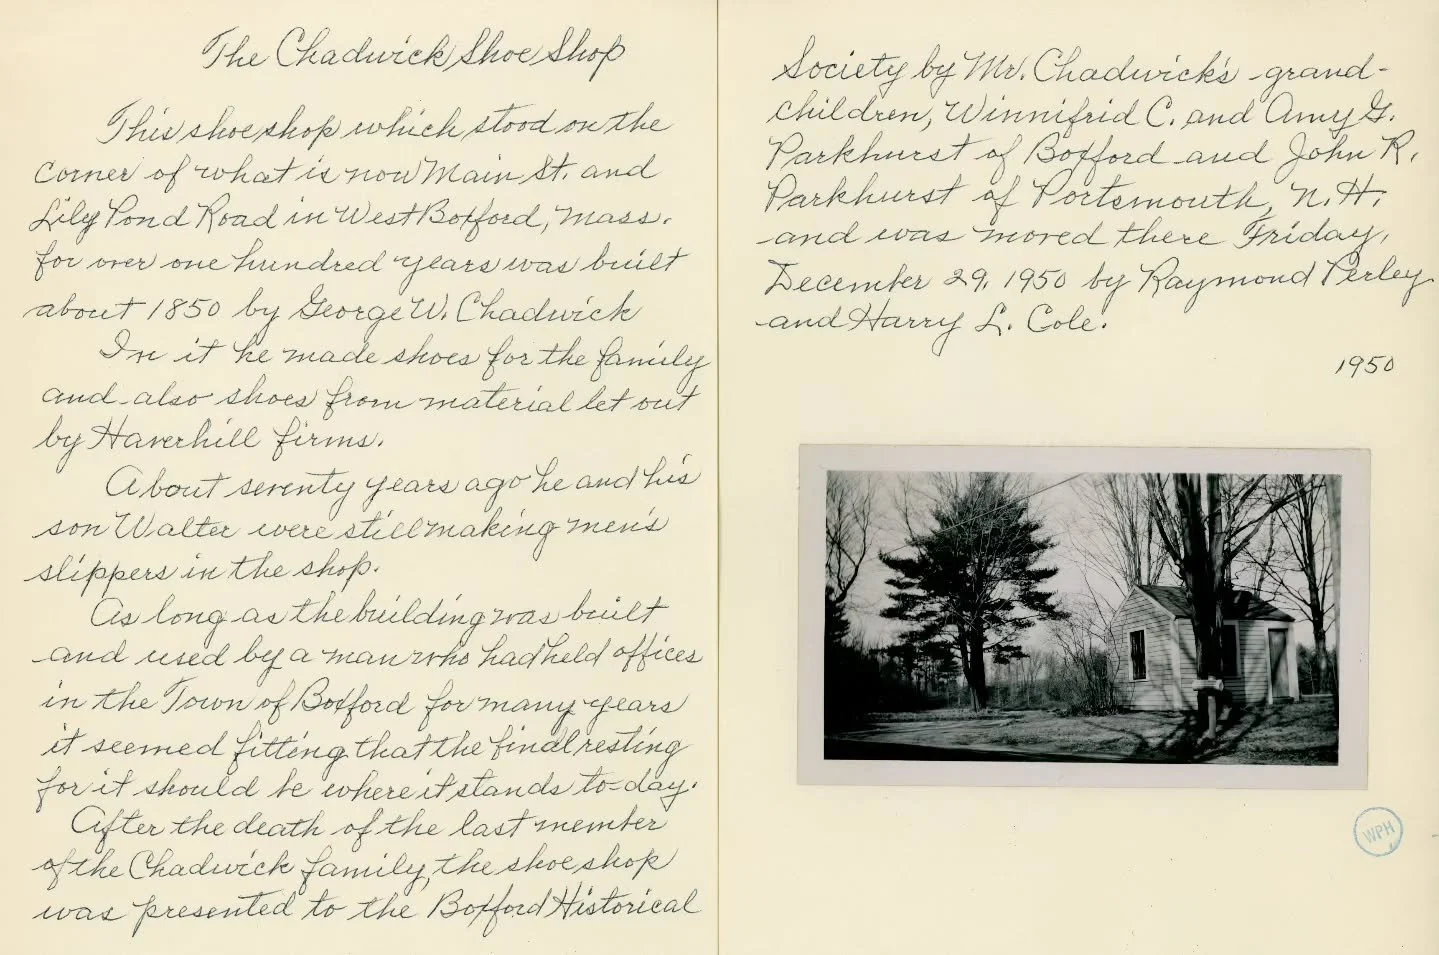 The Chadwick Shoe Shop
This shoe shop which stood on the
corner of what is now Main St. and
Lily Pond Road in West Boxford, Mass.
for over one hundred years was built
about 1850 by George W. Chadwick
In it he made shoes for the family
and also shoes from material let out
by Haverhill firms.
About seventy years ago he and his
son Walter were still making men's
slippers in the shop.
As long as the building was built
and used by a man who had held offices
in the Town of Boxford for many years
it seemed fitting that the final resting
for it should be where it stands to-day.
After the death of the last member
of the Chadwick family, the shoe shop
was presented to the Boxford Historical
Society by Mr. Chadwick's grand-
children, Winnifrid C. and Amy G.
Parkhurst of Boxford and John R.
Parkhurst of Portsmouth, N.H.
and was moved there Friday,
December 29, 1950 by Raymond Perley
and Harry L. Cole.
1950
WPH